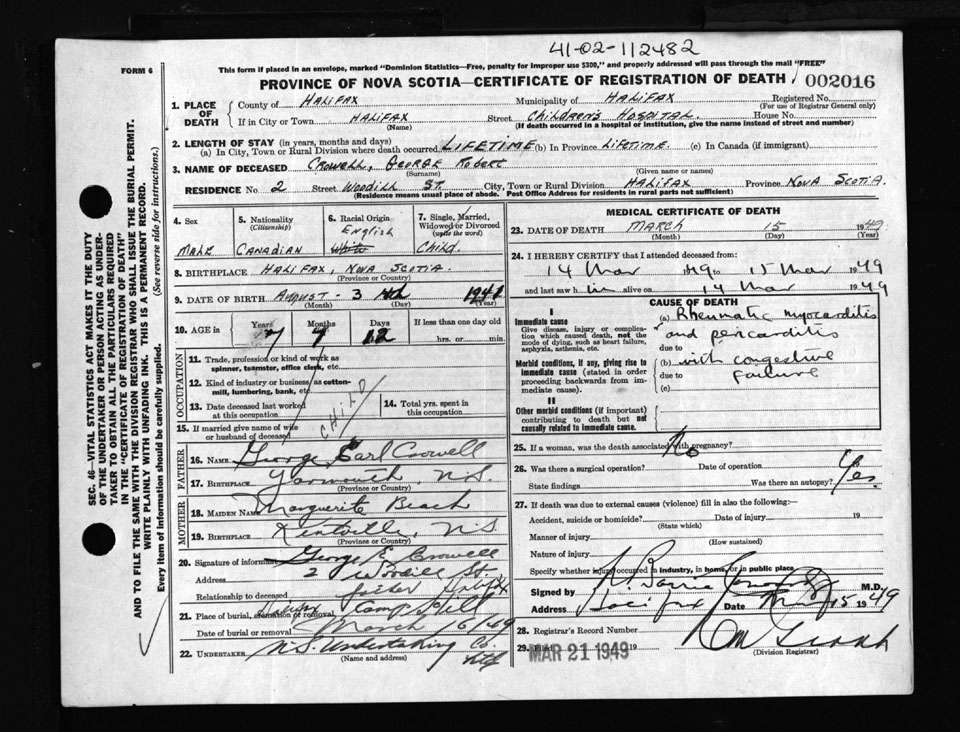 41-02-112482
FORM 6
This form if placed in an envelope, marked "Dominion Statistics—Free, penalty for improper use $300," and properly addressed will pass through the mail "FREE"
PROVINCE OF NOVA SCOTIA—CERTIFICATE OF REGISTRATION OF DEATH
002016
1. PLACE OF DEATH
County of HALIFAX Municipality of HALIFAX Registered No.
(For use of Registrar General only)
If in City or Town HALIFAX Street CHILDREN'S HOSPITAL House No.
(Name) (If death occurred in a hospital or institution, give the name instead of street and number)
2. LENGTH OF STAY (in years, months and days)
(a) In City, Town or Rural Division where death occurred LIFETIME (b) In Province LIFETIME (c) In Canada (if immigrant)
3. NAME OF DECEASED CROWELL, GEORGE ROBERT
(Surname) (Given name or names)
RESIDENCE No. 2 Street WOODILL ST. City, Town or Rural Division HALIFAX Province NOVA SCOTIA.
(Residence means usual place of abode. Post Office Address for residents in rural parts not sufficient)
4. Sex
MALE
5. Nationality
(Citizenship)
CANADIAN
6. Racial Origin
ENGLISH
White
7. Single, Married, Widowed or Divorced
(write the word)
CHILD.
8. BIRTHPLACE HALIFAX, NOVA SCOTIA.
(Province or Country)
9. DATE OF BIRTH AUGUST - 3 1941
(Year)
10. AGE in
Years Months Days If less than one day
7 7 12 hrs. or min.
OCCUPATION
11. Trade, profession or kind of work as spinner, teamster, office clerk, etc.
12. Kind of industry or business, as cotton-mill, lumbering, bank, etc.
13. Date deceased last worked at this occupation
14. Total yrs. spent in this occupation
CHILD
15. If married give name of wife or husband of deceased
FATHER
16. Name George Earl Crowell
17. Birthplace Yarmouth, N.S.
(Province or Country)
MOTHER
18. Maiden Name Marguerite Beach
19. Birthplace Kentville, N.S
(Province or Country)
20. Signature of informant George E. Crowell
Address 2 Woodill St.
Relationship to deceased father Halifax
21. Place of burial, cremation or removal Halifax Camp Hill
Date of burial or removal March 16/49
22. UNDERTAKER N.S. Undertaking Co. Hfx
(Name and address)
MEDICAL CERTIFICATE OF DEATH
23. DATE OF DEATH MARCH 15 1949
(Month) (Day) (Year)
24. I HEREBY CERTIFY that I attended deceased from:
14 Mar 1949 to 15 Mar 1949
and last saw him alive on 14 Mar 1949
CAUSE OF DEATH
I
Immediate cause
Give disease, injury or complication which caused death, not the mode of dying, such as heart failure, asphyxia, asthenia, etc.
(a) Rheumatic myocarditis
and pericarditis
due to
Morbid conditions, if any, giving rise to immediate cause (stated in order proceeding backwards from immediate cause).
(b) with congestive
due to failure
(c)
II
Other morbid conditions (if important) contributing to death but not causally related to immediate cause.
25. If a woman, was the death associated with pregnancy? No
26. Was there a surgical operation? Date of operation
State findings Was there an autopsy? Yes.
27. If death was due to external causes (violence) fill in also the following:—
Accident, suicide or homicide? Date of injury 19
(State which)
Manner of injury
(How sustained)
Nature of injury
Specify whether injury occurred in industry, in home, or in public place
Signed by M.D.
Address Halifax Date Mar 15 1949
28. Registrar's Record Number
29. Filed MAR 21 1949 19
(Division Registrar)
SEC. 46—VITAL STATISTICS ACT MAKES IT THE DUTY OF THE UNDERTAKER OR PERSON ACTING AS UNDERTAKER TO OBTAIN ALL THE PARTICULARS REQUIRED IN THE "CERTIFICATE OF REGISTRATION OF DEATH" AND TO FILE THE SAME WITH THE DIVISION REGISTRAR WHO SHALL ISSUE THE BURIAL PERMIT.
WRITE PLAINLY WITH UNFADING INK. THIS IS A PERMANENT RECORD.
Every item of information should be carefully supplied. (See reverse side for instructions.)